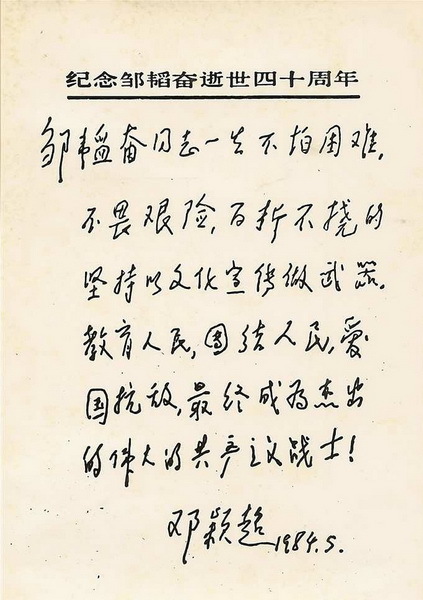 纪念邹韬奋逝世四十周年
邹韬奋同志一生不怕困难，
不畏艰险，百折不挠的
坚持以文化宣传做武器，
教育人民，团结人民，爱
国抗敌，最终成为杰出
的伟大的共产主义战士！
邓颖超 1984.5.